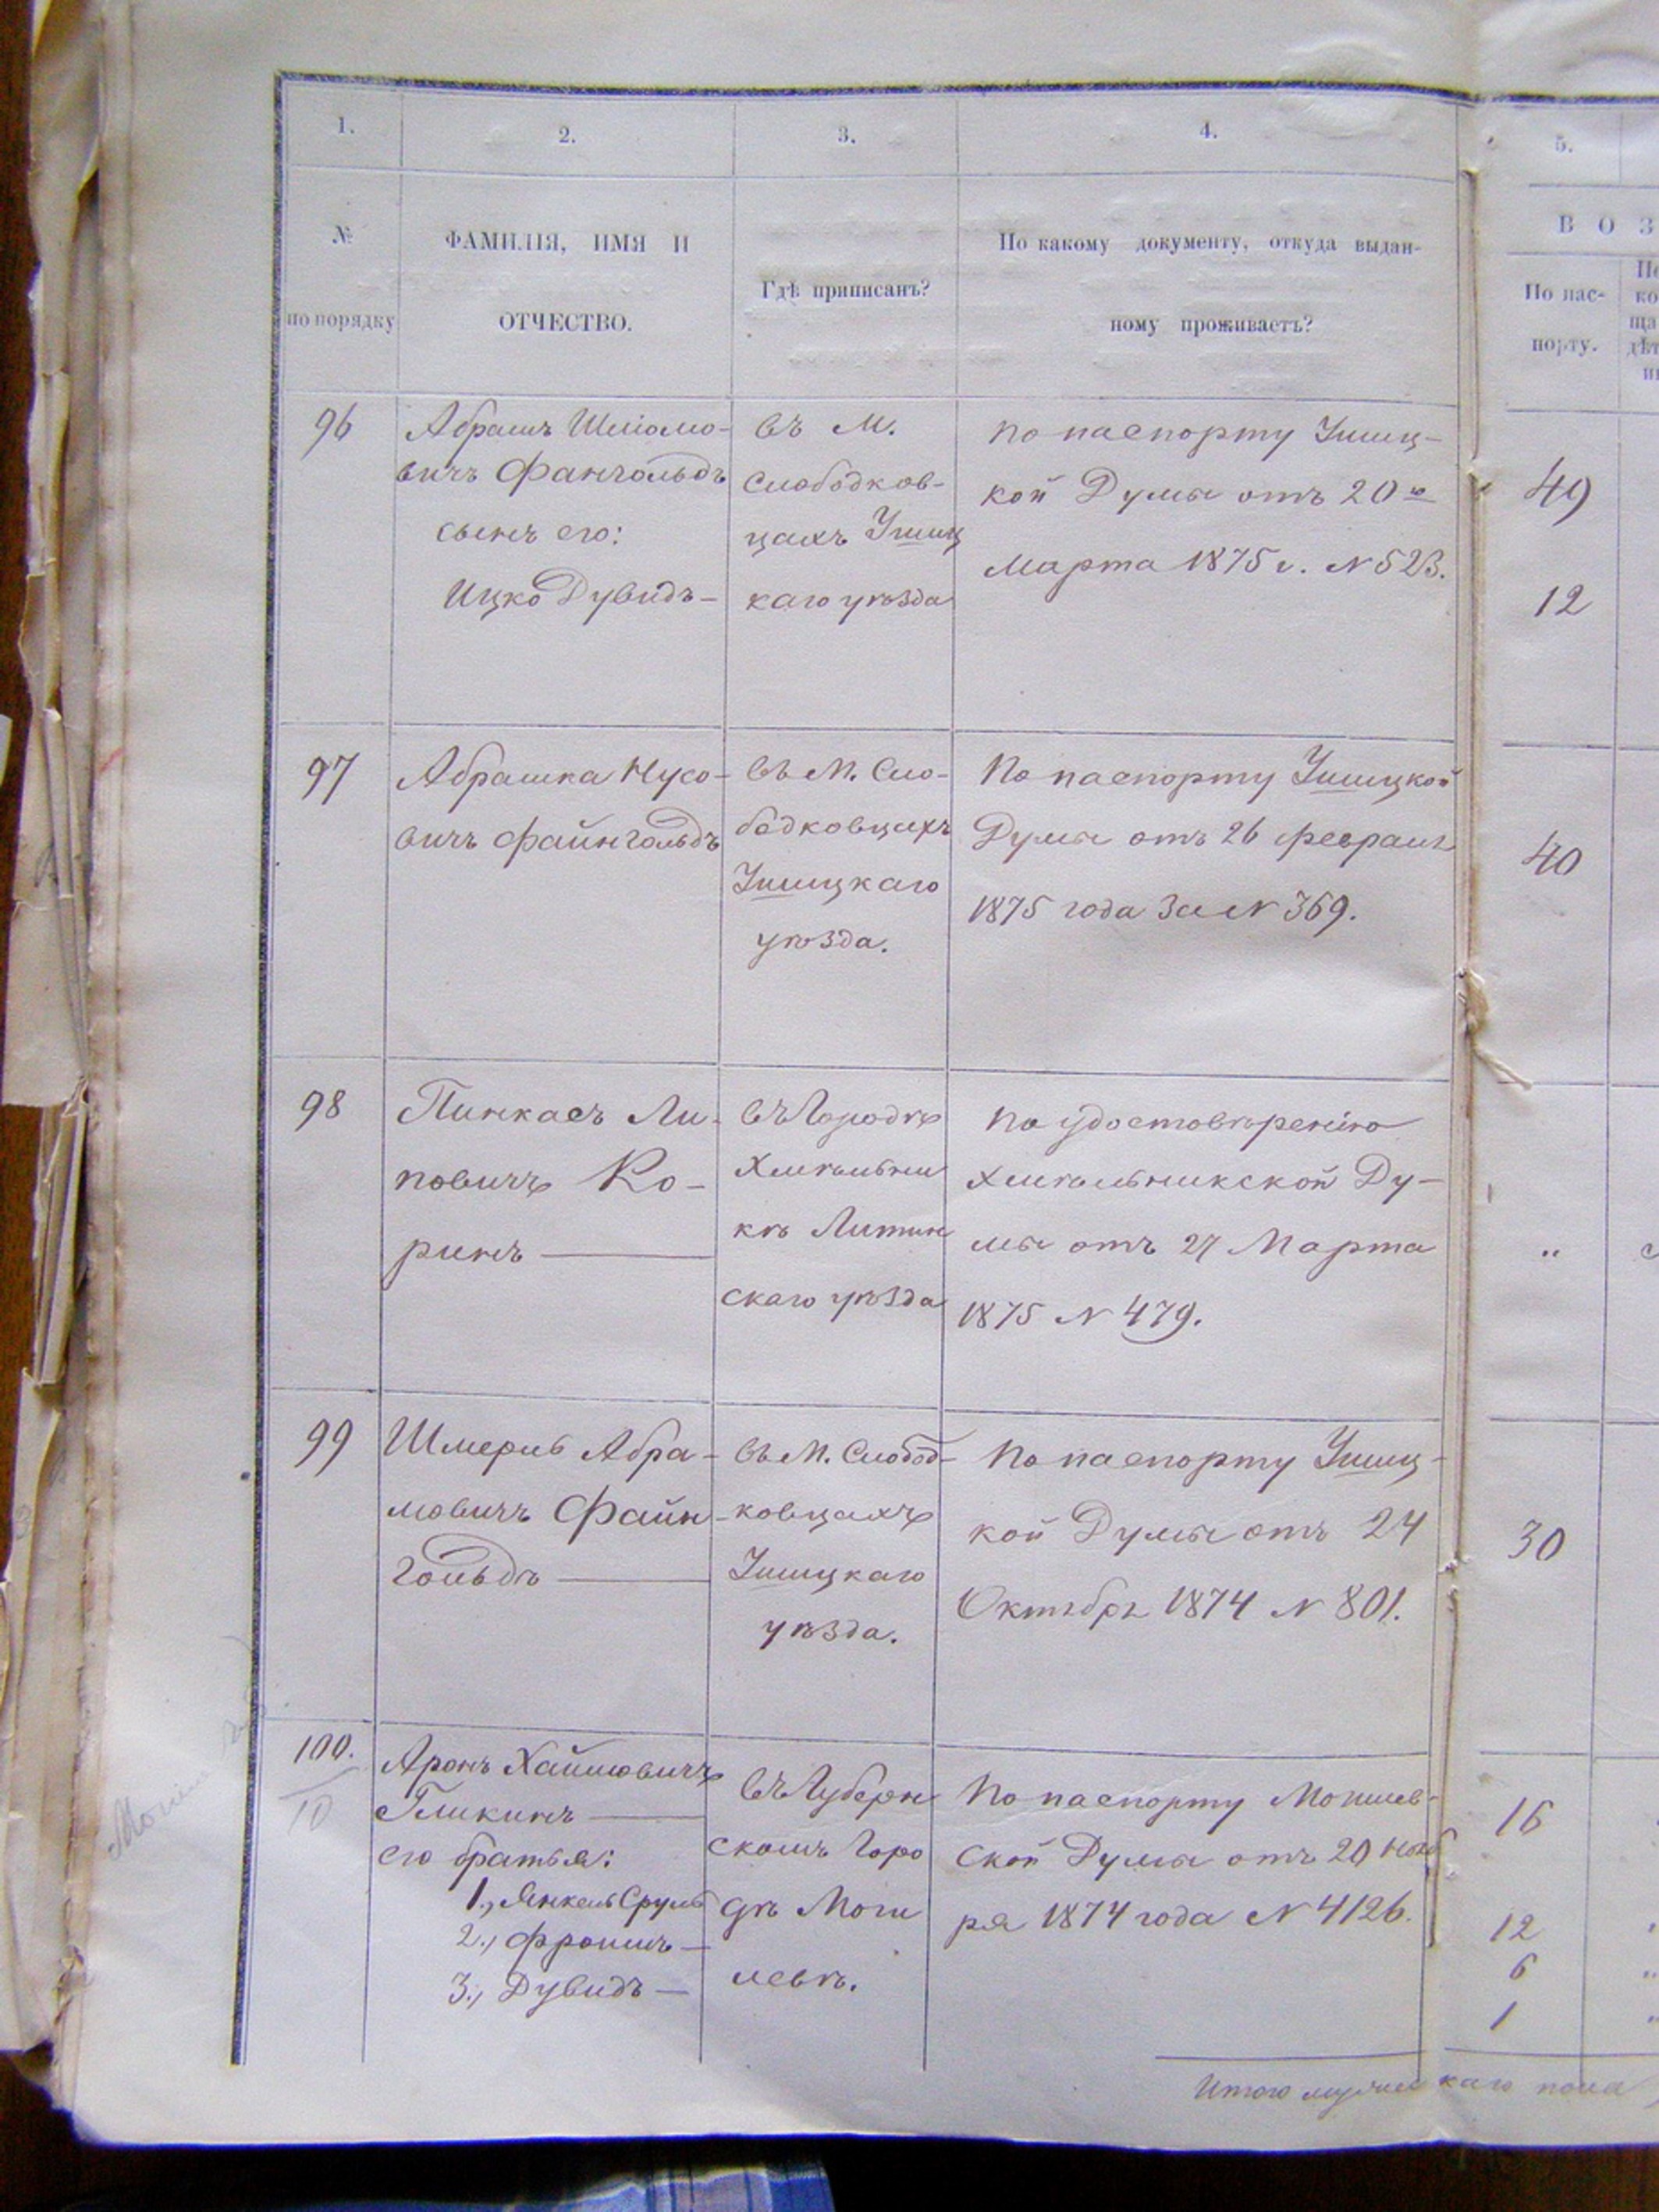 1.
2.
3.
4.
5.
№
по порядку
ФАМИЛІЯ, ИМЯ И
ОТЧЕСТВО.
Гдѣ приписанъ?
По какому документу, откуда выдан-
ному проживаетъ?
В О З
По пас-
порту.
96
Абрамъ Шліомо-
вичъ Фангольдъ
сынъ его:
Ицко Дувидъ —
въ М.
Слободков-
цахъ Ушиц
каго уѣзда
По паспорту Ушиц-
кой Думы отъ 20 го
Марта 1875 г. № 523.
49
12
97
Абрашка Нусо-
вичъ Файнгольдъ
въ М. Сло-
бодковцахъ
Ушицкаго
уѣзда.
По паспорту Ушицкой
Думы отъ 26 февраля
1875 года За № 369.
40
98
Пинкасъ Ли-
повичъ Ко-
ринъ —
въ Городѣ
Хмѣльни
кѣ Литин
скаго уѣзда
По удостовѣренію
Хмѣльникской Ду-
мы отъ 27 Марта
1875 № 479.
"
99
Шмерль Абра-
мовичъ Файн-
гольдъ —
въ М. Слобод-
ковцахъ
Ушицкаго
уѣзда.
По паспорту Ушиц-
кой Думы отъ 24
Октября 1874 № 801.
30
100.
10
Аронъ Хаимовичъ
Гликинъ —
его братья:
1., Янкель Сруль
2., Фроимъ —
3., Дувидъ —
въ Губерн
скомъ Горо
дѣ Моги
левѣ.
По паспорту Могилев-
ской Думы отъ 20 Нояб
ря 1874 года № 4126.
16
12
6
1
Итого мужескаго пола